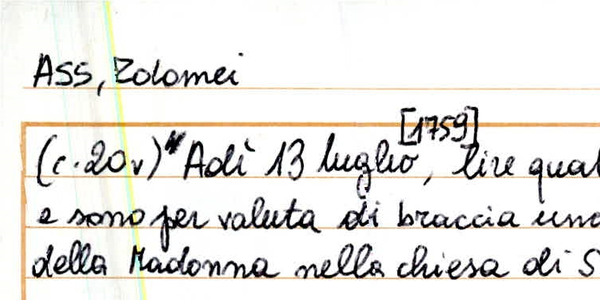 ASS, Zolomei
[1759]
(c. 20v) "Adì 13 luglio, lire qual
e sono per valuta di braccia uno
della Madonna nella chiesa di S